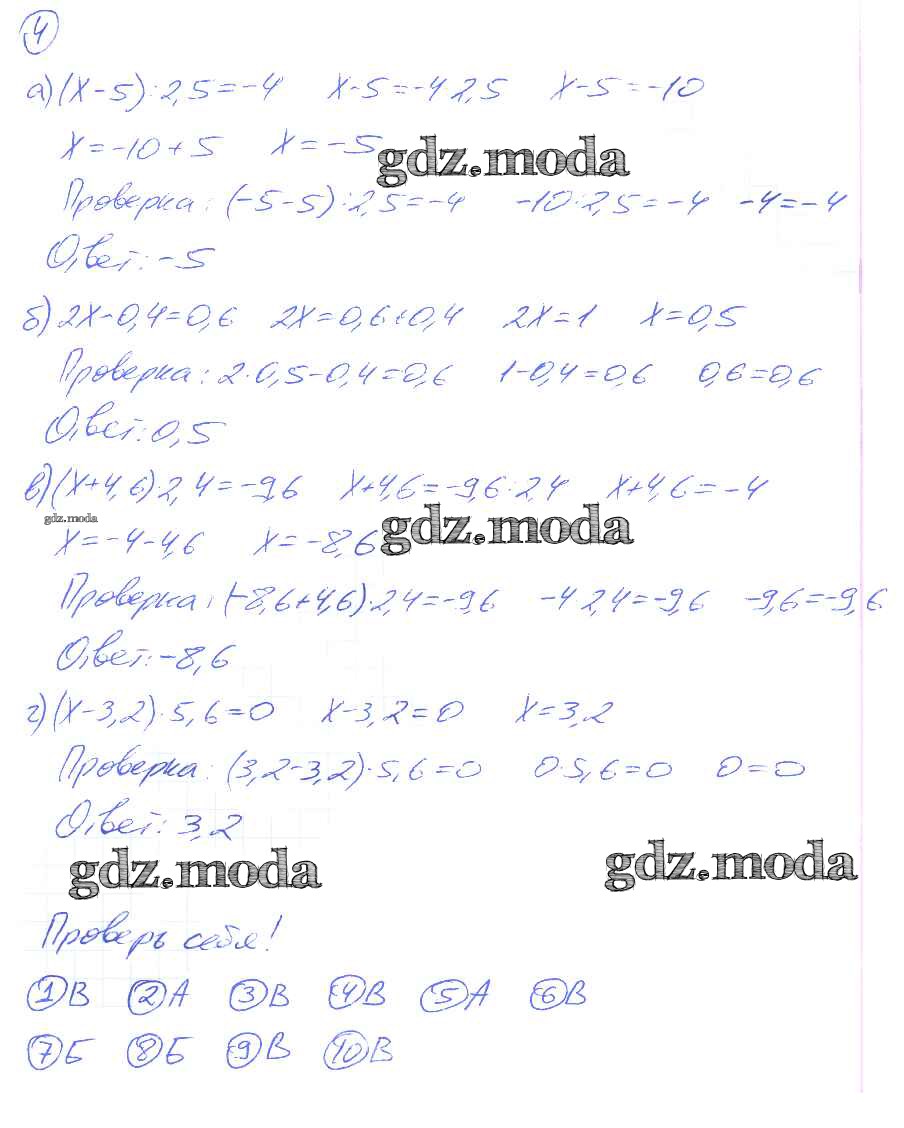 4
а) (x-5):2,5=-4 x-5=-4·2,5 x-5=-10
x=-10+5 x=-5
gdz.moda
Проверка: (-5-5):2,5=-4 -10:2,5=-4 -4=-4
Ответ: -5
б) 2x-0,4=0,6 2x=0,6+0,4 2x=1 x=0,5
Проверка: 2·0,5-0,4=0,6 1-0,4=0,6 0,6=0,6
Ответ: 0,5
в) (x+4,6)·2,4=-9,6 x+4,6=-9,6:2,4 x+4,6=-4
gdz.moda
x=-4-4,6 x=-8,6 gdz.moda
Проверка: (-8,6+4,6)·2,4=-9,6 -4·2,4=-9,6 -9,6=-9,6
Ответ: -8,6
г) (x-3,2)·5,6=0 x-3,2=0 x=3,2
Проверка: (3,2-3,2)·5,6=0 0·5,6=0 0=0
Ответ: 3,2
gdz.moda gdz.moda
Проверь себя!
1 В 2 А 3 В 4 В 5 А 6 В
7 Б 8 Б 9 В 10 В